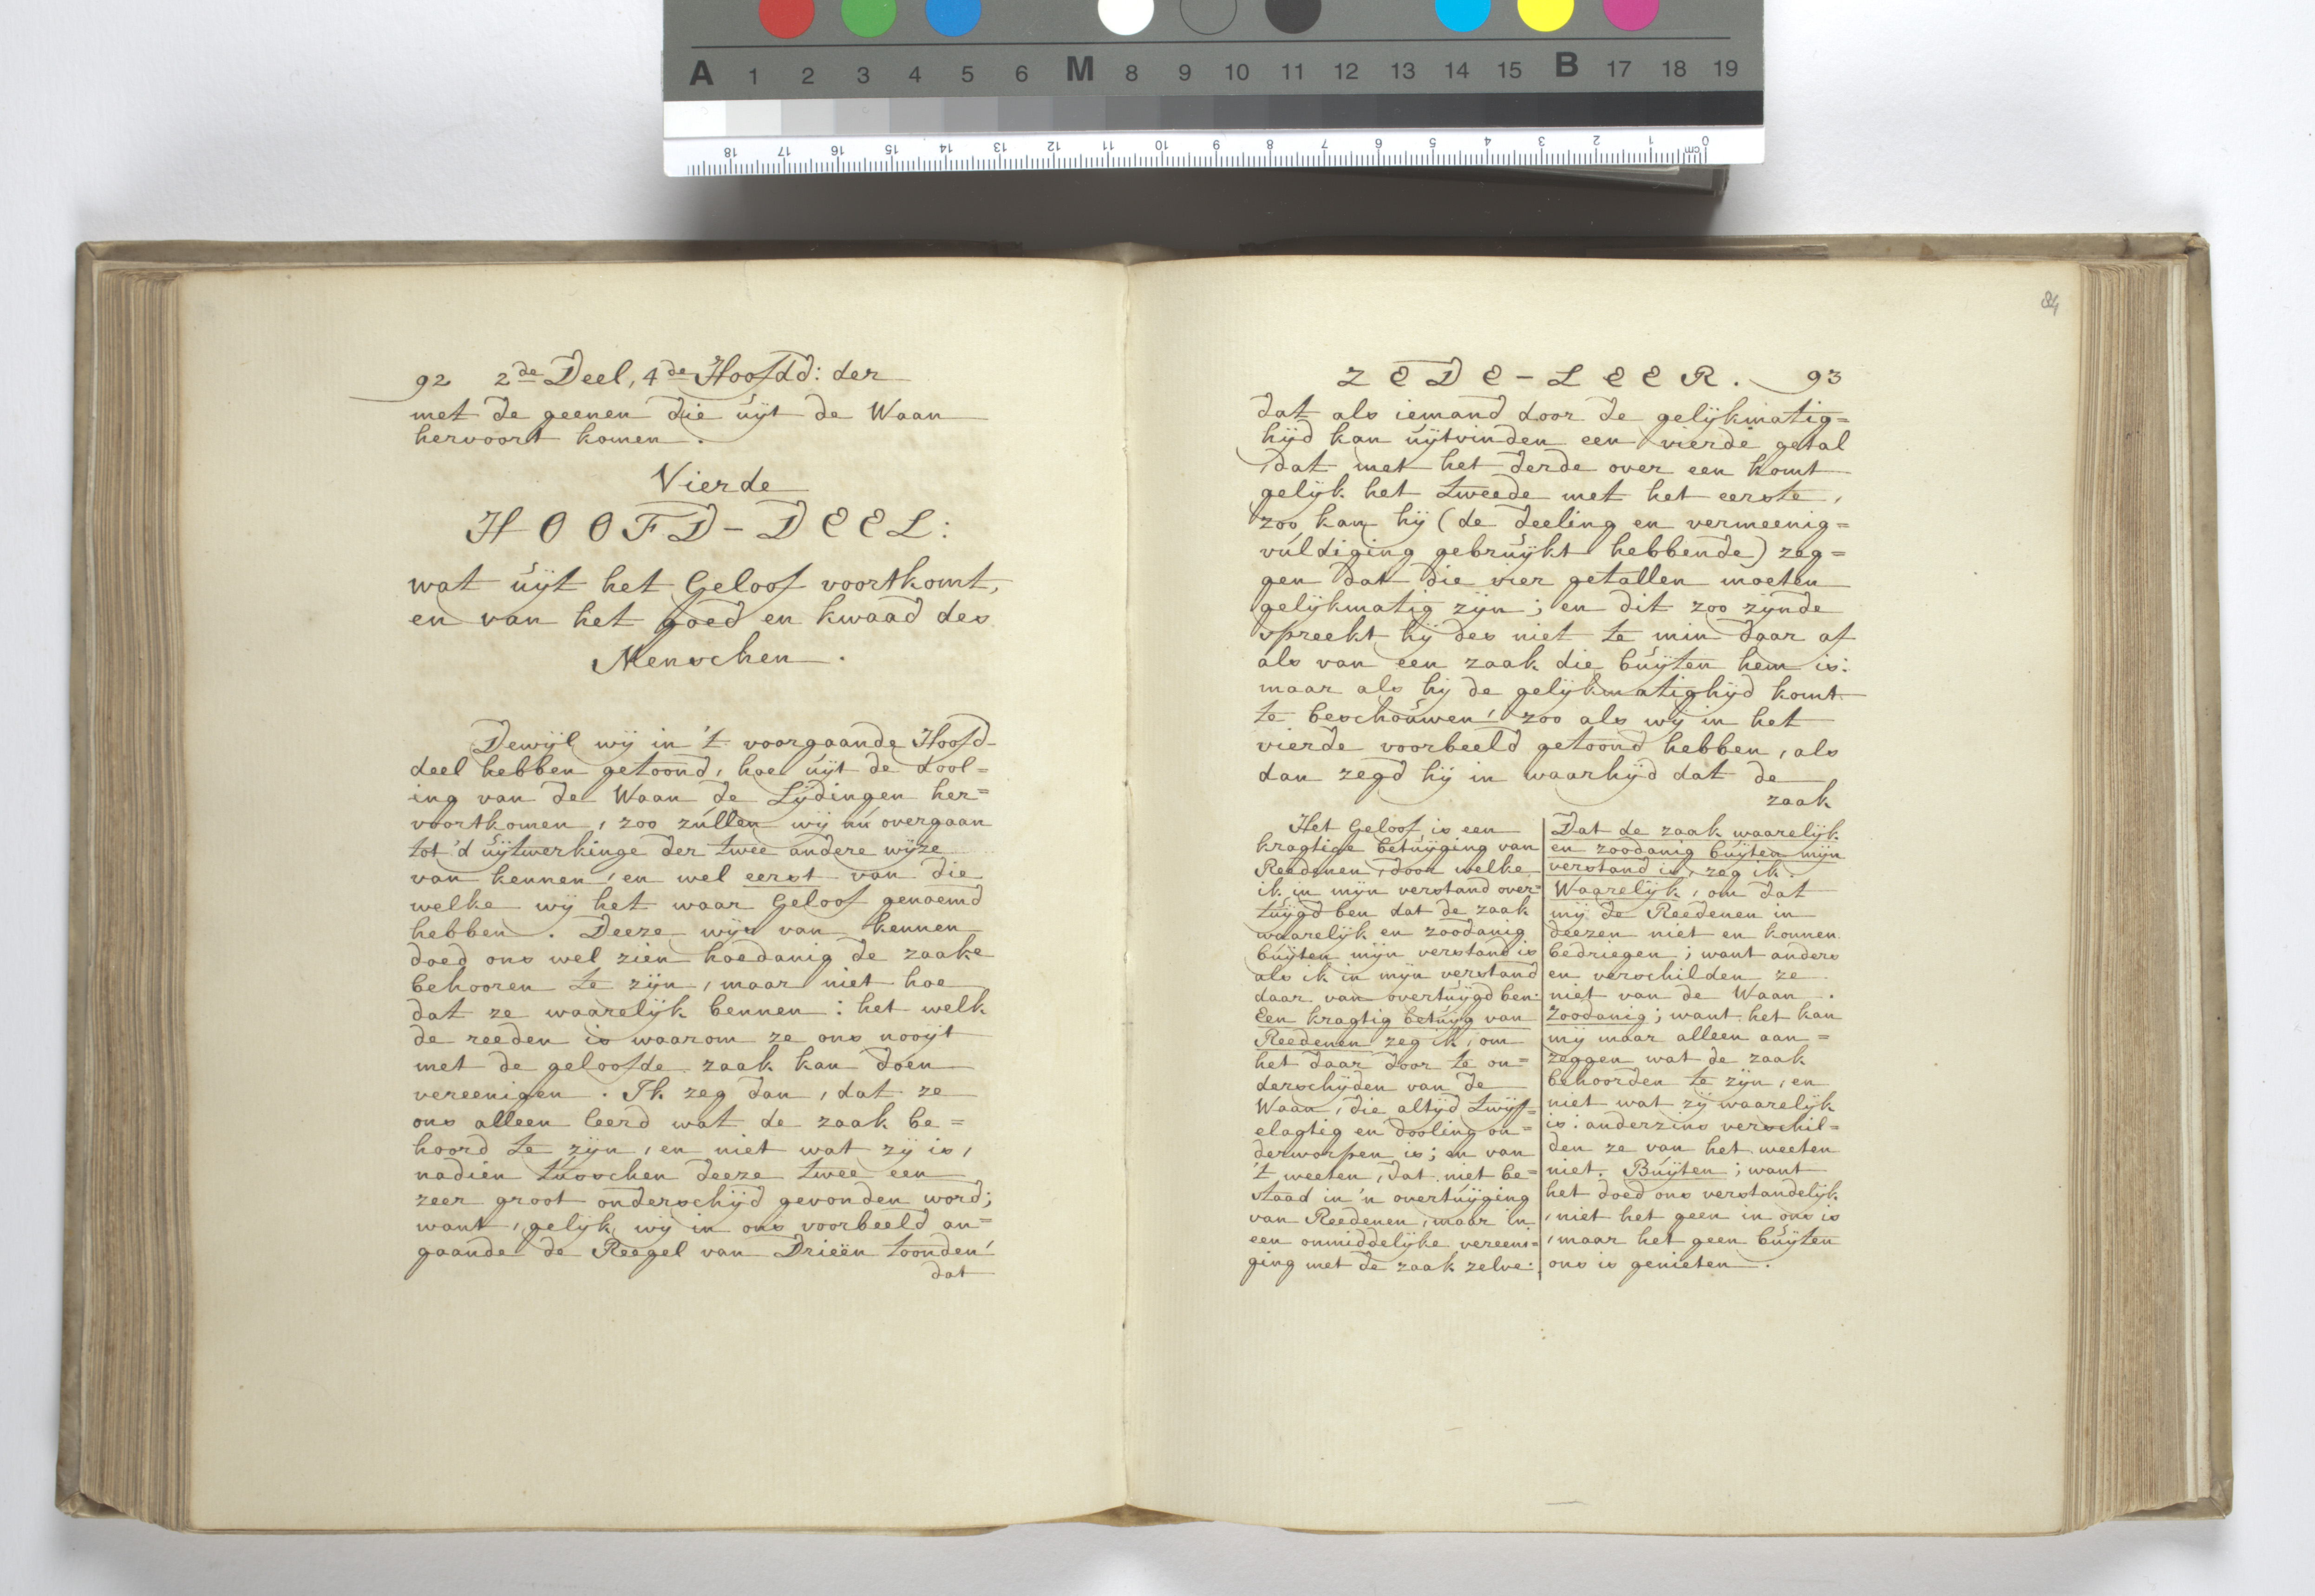 A 1 2 3 4 5 6 M 8 9 10 11 12 13 14 15 B 17 18 19
18 17 16 15 14 13 12 11 10 9 8 7 6 5 4 3 2 1 0 cm
92 2de Deel, 4de Hoofdd: der
met de geenen die uÿt de Waan
hervoort komen.
Vierde
HOOFD-DEEL:
wat uÿt het Geloof voortkomt,
en van het goed en kwaad des
Menschen.
Dewÿl wÿ in 't voorgaande Hoofd-
deel hebben getoond, hoe uÿt de dool=
ing van de Waan de Lÿdingen her=
voortkomen, zoo zullen wÿ nu overgaan
tot 'd uÿtwerkinge der twee andere wÿze
van kennen, en wel eerst van die
welke wÿ het waar Geloof genoemd
hebben. Deeze wÿs van kennen
doed ons wel zien hoedanig de zaake
behooren te zÿn, maar niet hoe
dat ze waarelÿk bennen: het welk
de reeden is waarom ze ons nooÿt
met de geloofde zaak kan doen
vereenigen. Ik zeg dan, dat ze
ons alleen leerd wat de zaak be=
hoord te zÿn, en niet wat zÿ is,
nadien tusschen deeze twee een
zeer groot onderschÿd gevonden word;
want, gelÿk wÿ in ons voorbeeld an=
gaande de Reegel van Drieën toonden,
dat
84
ZEDE-LEER. 93
dat als iemand door de gelÿkmatig=
hÿd kan uÿtvinden een vierde getal
, dat met het derde over een komt
gelÿk het tweede met het eerste,
zoo kan hÿ (de deeling en vermeenig=
vuldiging gebruÿkt hebbende) zeg=
gen dat die vier getallen moeten
gelÿkmatig zÿn; en dit zoo zÿnde
spreekt hÿ des niet te min daar af
als van een zaak die buÿten hem is:
maar als hÿ de gelÿkmatighÿd komt
te beschouwen, zoo als wÿ in het
vierde voorbeeld getoond hebben, als
dan zegd hÿ in waarhÿd dat de
zaak
Het Geloof is een
kragtige betuÿging van
Reedenen, door welke
ik in mÿn verstand over=
tuÿgd ben dat de zaak
waarelÿk en zoodanig
buÿten mÿn verstand is
als ik in mÿn verstand
daar van overtuÿgd ben:
Een kragtig betuÿg van
Reedenen zeg ik, om
het daar door te on=
derschÿden van de
Waan, die altÿd twÿf=
elagtig en dooling on=
derworpen is; en van
't weeten, dat niet be=
staad in 'n overtuÿging
van Reedenen, maar in
een onmiddelÿke vereeni=
ging met de zaak zelve:
Dat de zaak waarelÿk
en zoodanig buÿten mÿn
verstand is, zeg ik.
Waarelÿk, om dat
mÿ de Reedenen in
deezen niet en konnen
bedriegen; want anders
en verschilden ze
niet van de Waan.
Zoodanig; want het kan
mÿ maar alleen aan=
zeggen wat de zaak
behoorden te zÿn, en
niet wat zÿ waarelÿk
is: anderzins verschil=
den ze van het weeten
niet. Buÿten; want
het doed ons verstandelÿk
, niet het geen in ons is
, maar het geen buÿten
ons is genieten.